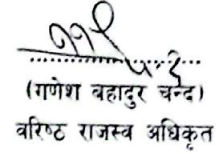 (गणेश बहादुर चन्द)
वरिष्ठ राजस्व अधिकृत